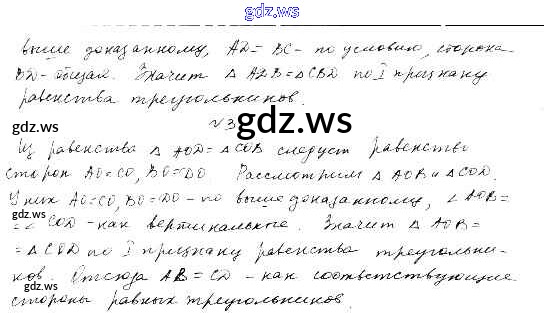 gdz.ws
выше доказанному, AD = BC - по условию, сторона
BD - общая. Значит △ ADB = △ CBD по I признаку
равенства треугольников.
gdz.ws
№3
gdz.ws
Из равенства △ AOD = △ COB следует равенство
сторон AO = CO, BO = DO Рассмотрим △ AOB и △ COD.
У них AO = CO, BO = DO - по выше доказанному, ∠ AOB =
gdz.ws
= ∠ COD - как вертикальные. Значит △ AOB =
= △ COD по I признаку равенства треугольни-
ков. Отсюда AB = CD - как соответствующие
gdz.ws
стороны равных треугольников.